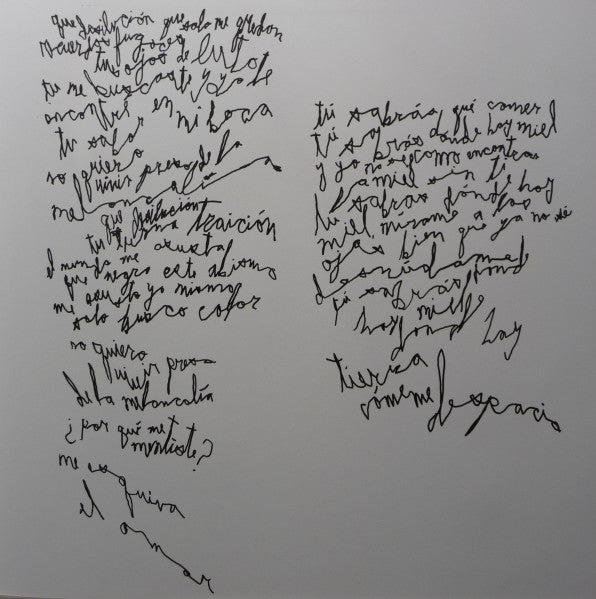 que desilución que solo me quedan
recuerdos fugaces
tus ojos de luto
tu me buscaste y yo te
encontré en mi boca
tu sabor
no quiero
vivir preso de la
melancolía
que desilución
tu fu una traición
el mundo me asusta
que negro este abismo
me asusto yo mismo
solo busco color
no quiero
vivir preso
de la melancolía
¿por qué me
mentiste?
me esquiva
el amar
tú sabrás qué comer
tú sabrás donde hay miel
y yo no se como encontrar
la miel sin ti
tu sabras dónde hay
miel mírame a los
ojos bien que ya no sé
desnúdame
tú sabrás dond
hay miel
dond hay
tierra
cómeme despacio